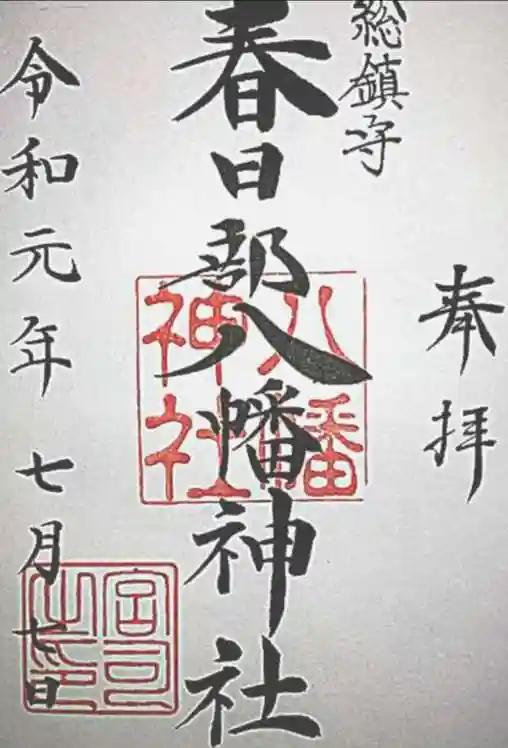 奉拝
総鎮守
春日部八幡神社
八幡
神社
令和元年七月七日
宮司
之印